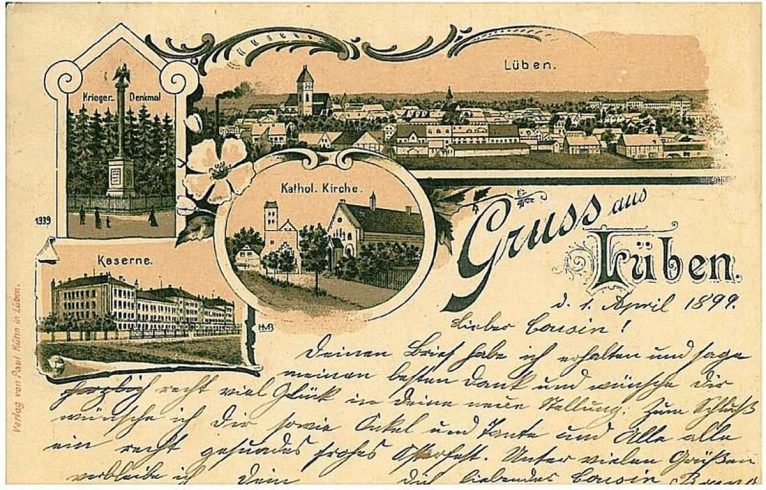 Lüben.
Krieger-Denkmal
Kathol. Kirche.
1339
Kaserne.
HMB
Gruss aus
Lüben.
Verlag von Paul Kühn in Lüben.
d. 1. April 1899.
Lieber Cousin!
Deinen Brief habe ich erhalten und sage
meinen besten Dank und wünsche Dir
herzlich recht viel Glück in deine neue Stellung. Zum Schluß
wünsche ich Dir sowie Onkel und Tante und Alle alle
ein recht gesundes frohes Osterfest. Unter vielen Grüßen
verbleibe ich Dein Dich liebendes Cousin